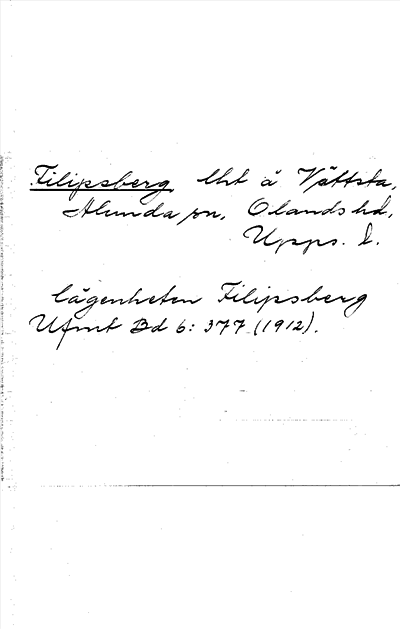 Filipsberg lht å Vättsta,
Alunda sn, Olands hd,
Upps. l.
lägenheten Filipsberg
Ufmt Bd 6: 377 (1912).